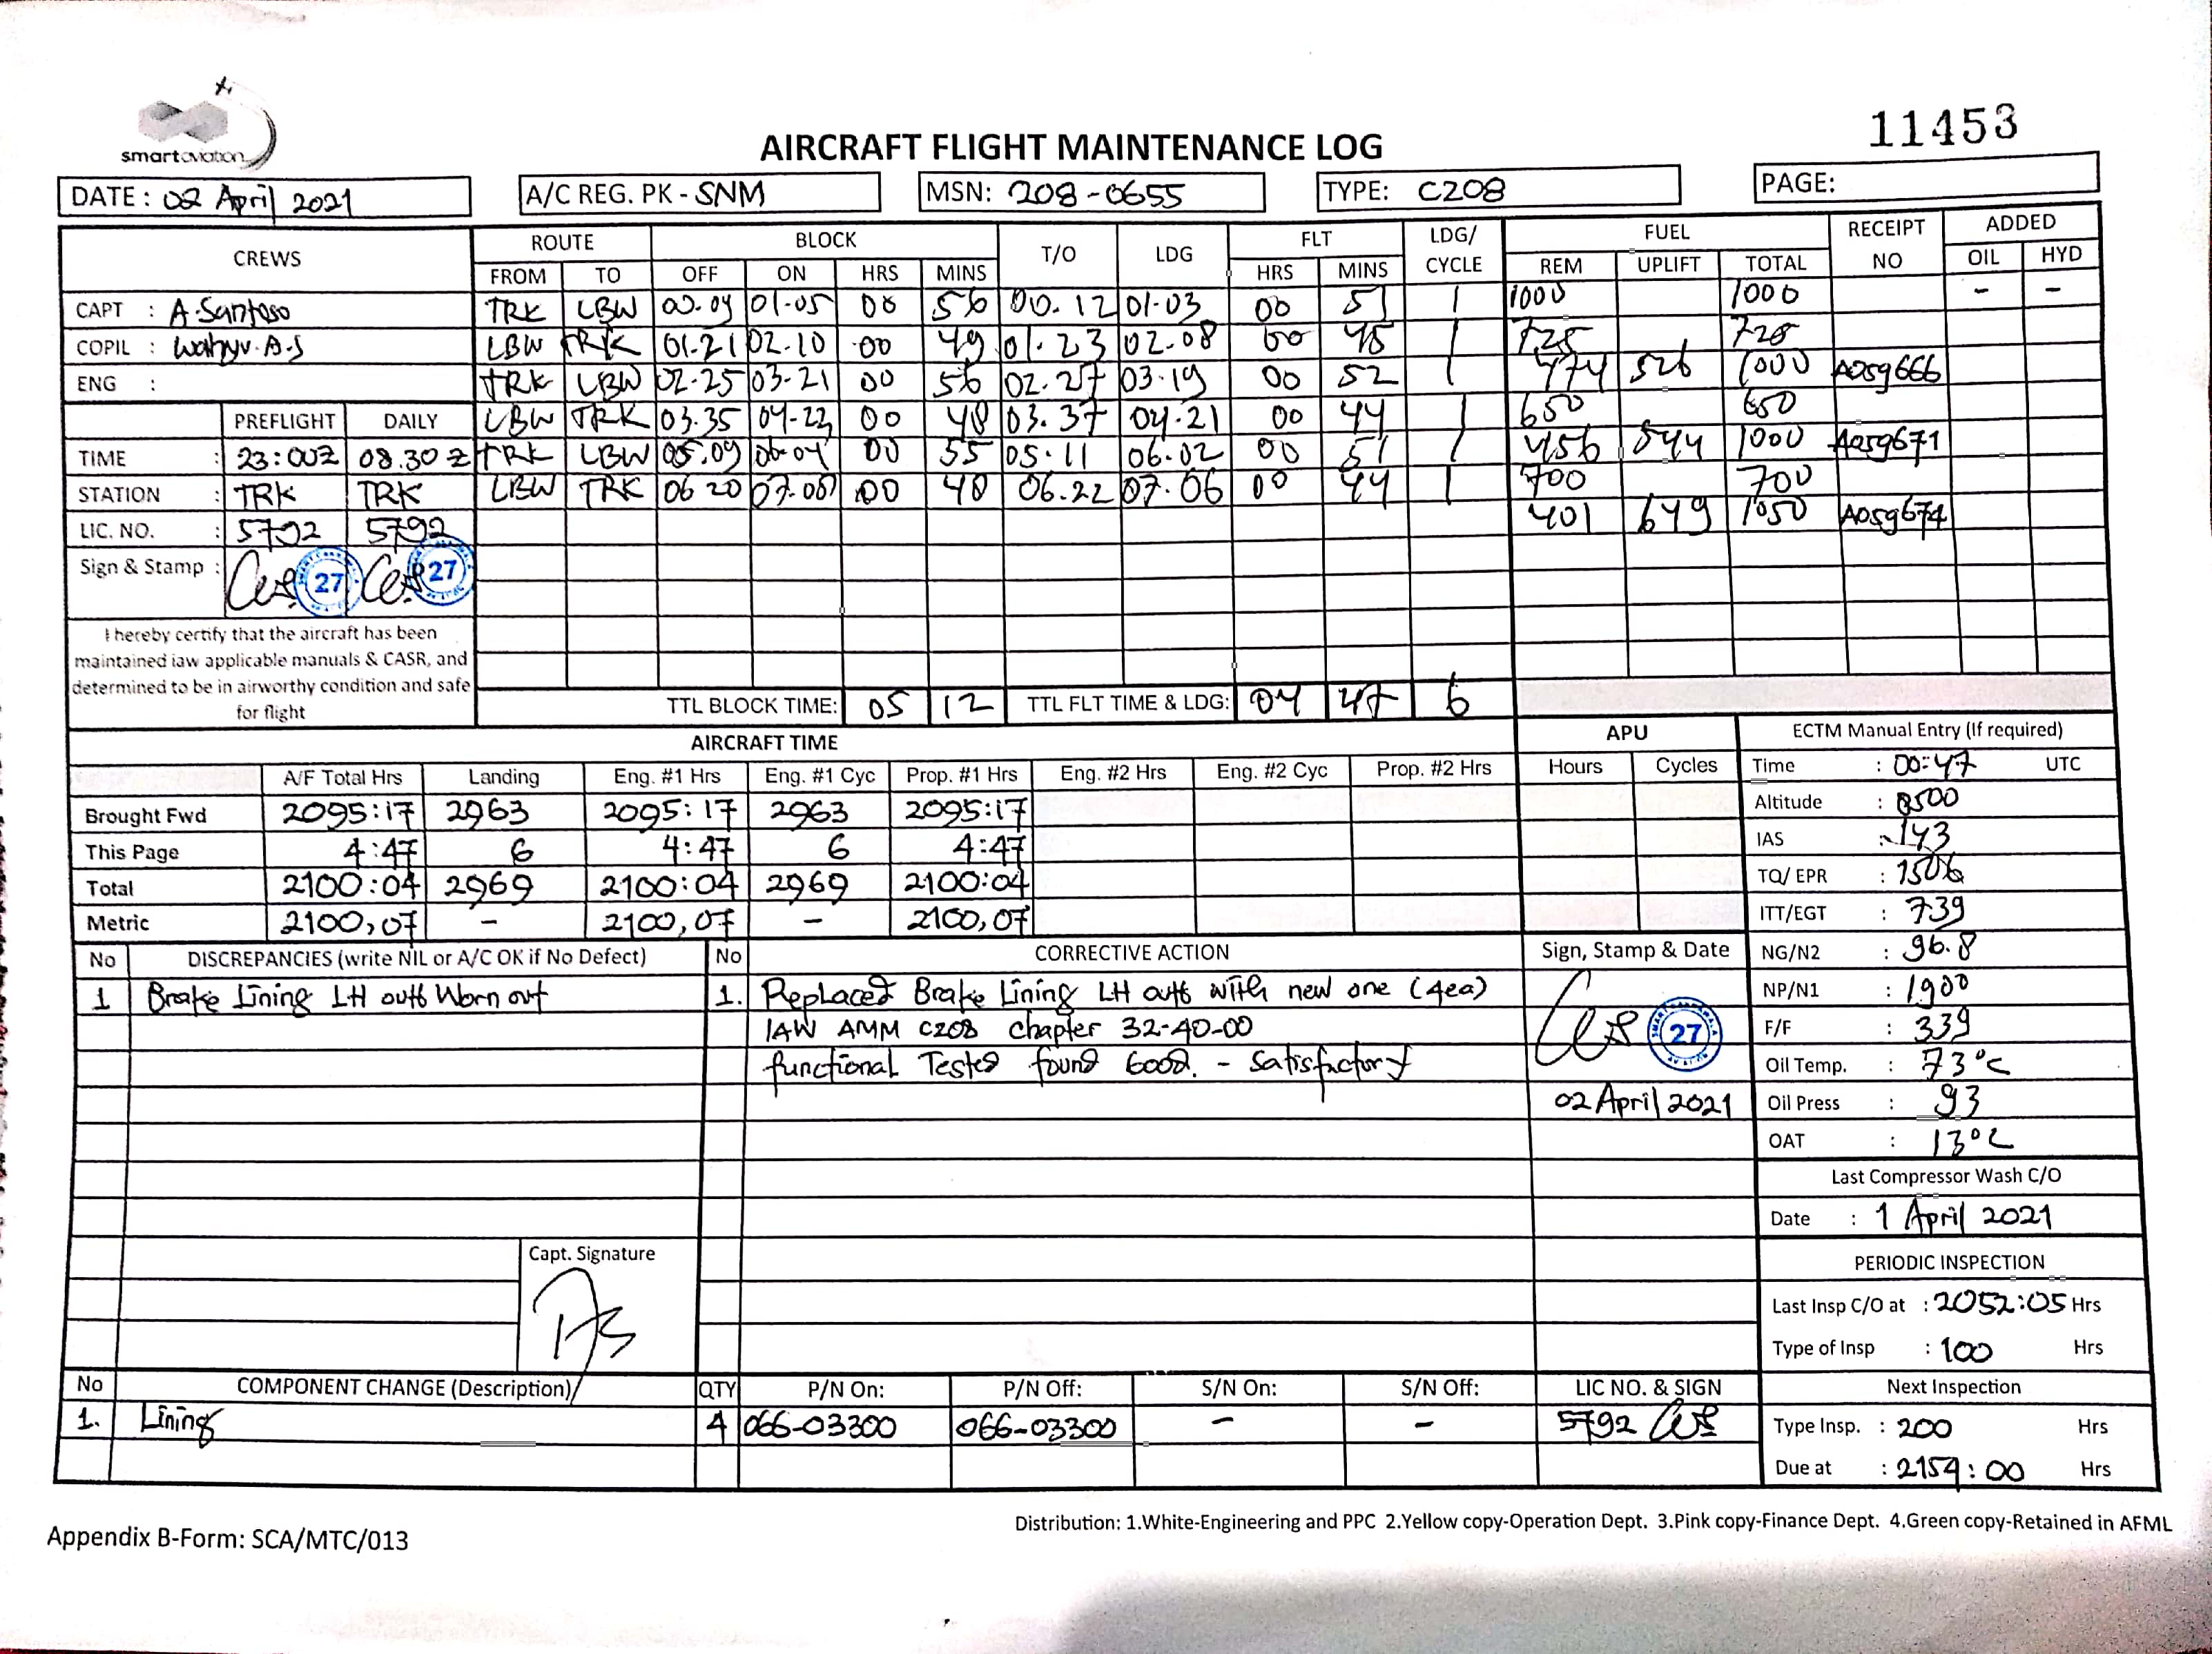 smartaviation
11453
AIRCRAFT FLIGHT MAINTENANCE LOG
DATE: 02 April 2021 A/C REG. PK - SNM MSN: 208-0655 TYPE: C208 PAGE:
CREWS ROUTE BLOCK T/O LDG FLT LDG/ CYCLE FUEL RECEIPT NO ADDED
FROM TO OFF ON HRS MINS HRS MINS REM UPLIFT TOTAL OIL HYD
CAPT : A.Santoso TRK LBW 00.09 01-05 00 56 00.12 01-03 00 51 1 1000 1000 - -
COPIL : Wahyu.A.S LBW TRK 01.21 02.10 00 49 01.23 02.08 00 45 1 725 725
ENG : TRK LBW 02-25 03-21 00 56 02.27 03.19 00 52 1 474 526 1000 A059666
PREFLIGHT DAILY LBW TRK 03.35 04-23 00 48 03.37 04.21 00 44 1 650 650
TIME : 23:00Z 08.30 Z TRK LBW 05.09 06-04 00 55 05.11 06.02 00 51 1 456 544 1000 A059671
STATION : TRK TRK LBW TRK 06 20 07.08 00 48 06.22 07.06 00 44 1 700 700
LIC. NO. : 5792 5792 401 649 1050 A059674
Sign & Stamp : 27 27
I hereby certify that the aircraft has been
maintained iaw applicable manuals & CASR, and
determined to be in airworthy condition and safe
for flight
TTL BLOCK TIME: 05 12 TTL FLT TIME & LDG: 04 47 6
AIRCRAFT TIME APU ECTM Manual Entry (If required)
A/F Total Hrs Landing Eng. #1 Hrs Eng. #1 Cyc Prop. #1 Hrs Eng. #2 Hrs Eng. #2 Cyc Prop. #2 Hrs Hours Cycles Time : 00:47 UTC
Brought Fwd 2095:17 2963 2095:17 2963 2095:17 Altitude : 8500
This Page 4:47 6 4:47 6 4:47 IAS : 143
Total 2100:04 2969 2100:04 2969 2100:04 TQ/ EPR : 1506
Metric 2100,07 - 2100,07 - 2100,07 ITT/EGT : 739
No DISCREPANCIES (write NIL or A/C OK if No Defect) No CORRECTIVE ACTION Sign, Stamp & Date NG/N2 : 96.8
1 Brake Lining LH outb Worn out 1. Replaced Brake Lining LH outb with new one (4ea) NP/N1 : 1900
IAW AMM C208 chapter 32-40-00 27 F/F : 339
functional Tested found Good. - Satisfactory Oil Temp. : 73°C
02 April 2021 Oil Press : 93
OAT : 13°C
Last Compressor Wash C/O
Date : 1 April 2021
Capt. Signature PERIODIC INSPECTION
Last Insp C/O at : 2052:05 Hrs
Type of Insp : 100 Hrs
No COMPONENT CHANGE (Description) QTY P/N On: P/N Off: S/N On: S/N Off: LIC NO. & SIGN Next Inspection
1. Lining 4 066-03300 066-03300 - - 5792 Type Insp. : 200 Hrs
Due at : 2154:00 Hrs
Appendix B-Form: SCA/MTC/013 Distribution: 1.White-Engineering and PPC 2.Yellow copy-Operation Dept. 3.Pink copy-Finance Dept. 4.Green copy-Retained in AFML